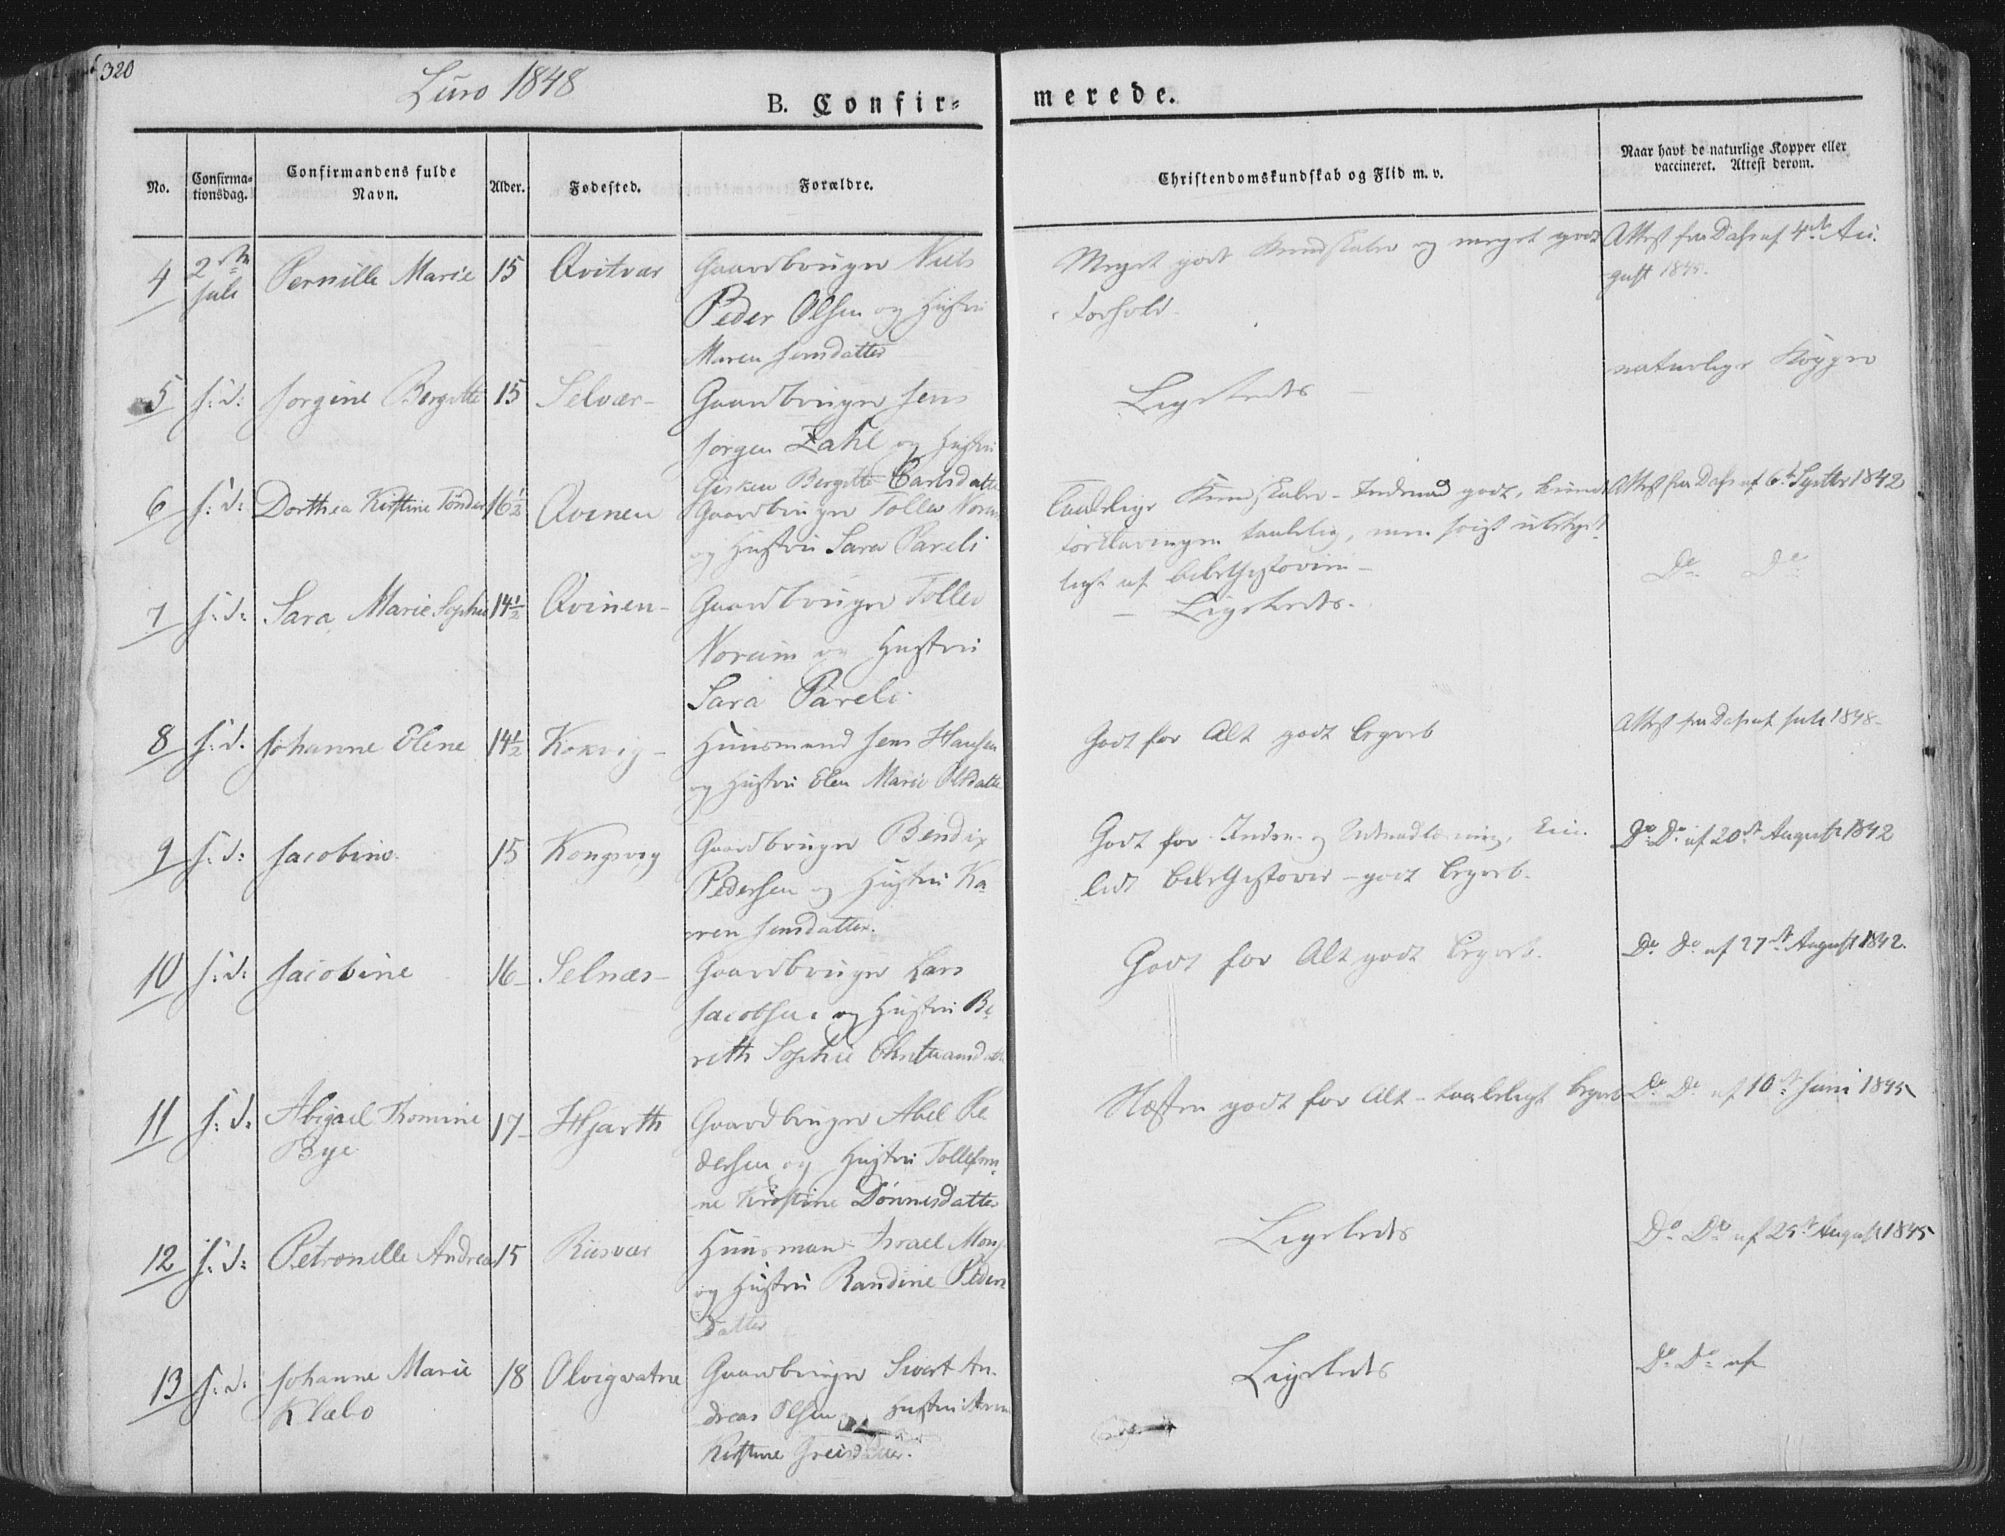 320
Lurø 1848
B. Confir= merede.
No. Confirma=tionsdag. Confirmandens fulde Navn. Alder. Fødested. Forældre. Christendomskundskab og Flid m. v. Naar havt de naturlige Kopper eller vaccineret. Attest derom.
4 2den Juli Pernille Marie 15 Qvitvær Gaardbruger Niels Meget godt Kundskaber og meget godt Attest fra Dass af 4de Au=
Peder Olsen og Hustru Forhold. gust 1845.
Maren Jensdatter
5 s: d: Jorgine Bergitte 15 Selvær - Gaardbruger Jens Ligeledes - naturlige Kopper
Jørgen Zahl og Hustru
Gisken Bergitte Carlsdatter
6 s: d: Dorthea Kirstine Tønder 16½ Qvinen Gaardbruger Tollev Norum Taalelige Kundskaber - Indenad godt, Attest fra Dass af 6te Septbr 1842
og Hustru Sara Pareli Forklaringen taalelig, men
ligt af Bibelhistorien -
7 s: d: Sara Marie Sophie 14½ Qvinen - Gaardbruger Tollev - Ligeledes. Do Do
Norum og Hustru
Sara Pareli.
8 s: d. Johanne Elene 14½ Kokvig - Huusmand Jens Hansen Godt for Alt godt Begreb Attest fra Dass af Juli 1848-
og Hustru Elen Marie Olsdatter
9 s: d: Jacobine 15 Kongsvig Gaardbruger Bendix Godt for Inden- og Udenadlæsning, Do Do af 20de August 1842
Pedersen og Hustru Ka= Bibelhistorie - godt Begreb.
ren Jensdatter.
10 s: d: Jacobine 16 - Selnæs - Gaardbruger Lars Godt for Alt godt Begreb. Do Do af 27de August 1842.
Jacobsen og Hustru Be=
reth Sophie
11 s: d. Abigael Thomine 17 - Hjarth Gaardbruger Abel Pe= Næsten godt for Alt - taaleligt Begreb Do Do af 10de Juni 1845
Bye dersen og Hustru
ne Kirstine Dønnesdatter
12 s: d: Petronelle Andrea 15 Riisvær Huusmand Israel Mons Ligeledes Do Do af 25de August 1845
og Hustru Randine Peders
datter
13 s: d. Johanne Marie 18 Olvigvatne Gaardbruger Sivert An= Ligeledes Do Do af
Klæbo dreas Olsen og Hustru
Kirstine